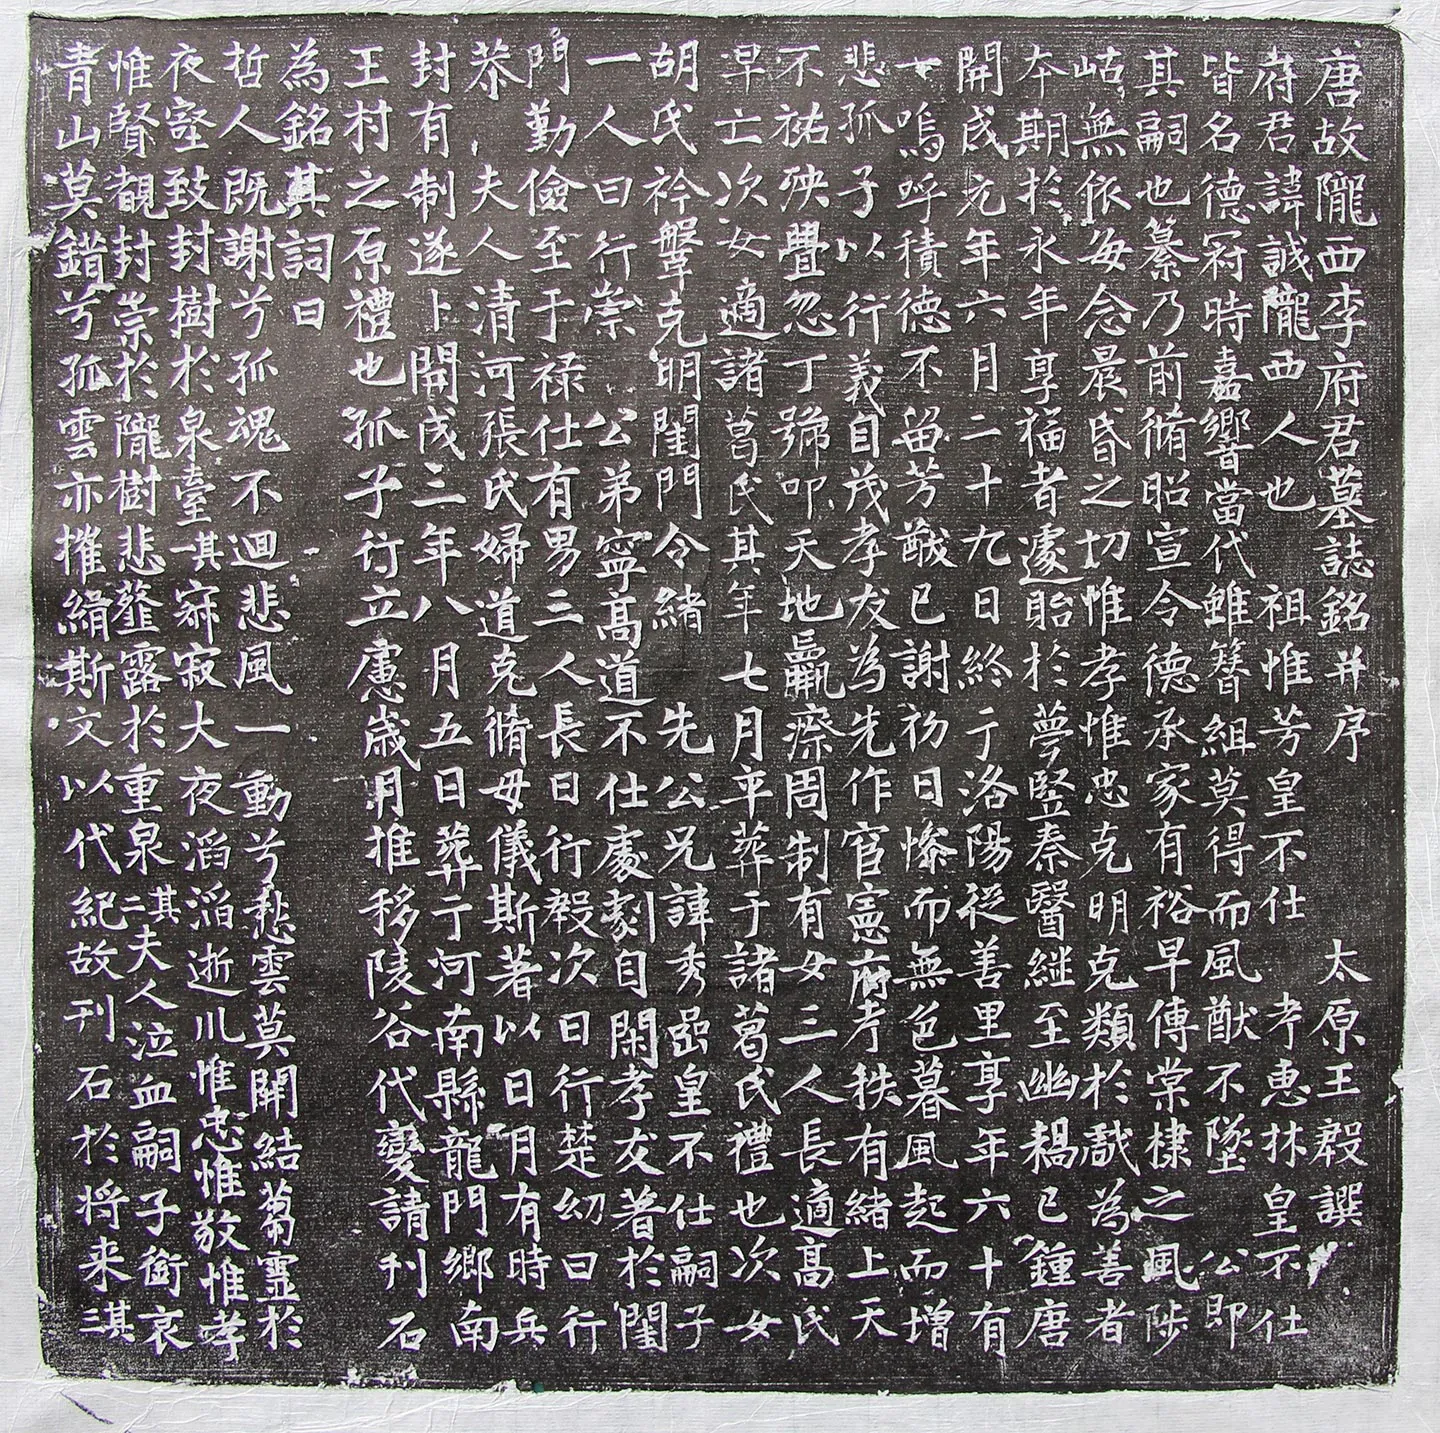 唐故隴西李府君墓誌銘并序 太原王殷譔
府君諱誠隴西人也 祖惟芳皇不仕 考惠林皇不仕
皆名德冠時嘉響當代雖簪組莫得而風猷不墜 公即
其嗣也纂乃前脩昭宣令德承家有裕早傳棠棣之風陟
岵無依每念晨昏之切惟孝惟忠克明克類於戲為善者
本期於永年享福者遽貽於夢竪秦醫繼至幽禍已鍾唐
開成元年六月二十九日終于洛陽從善里享年六十有
一嗚呼積德不留芳猷已謝初日慘而無色暮風起而增
悲孤子以行義自茂孝友為先作官憲府考秩有緒上天
不祐殃舋忽丁號叩天地羸瘵周制有女三人長適高氏
早亡次女適諸葛氏其年七月卒葬于諸葛氏禮也次女
胡氏衿鞶克明閨門令緒 先公兄諱秀嵒皇不仕嗣子
一人曰行崇 公弟寧高道不仕處劇自閑孝友著於閨
門勤儉至于祿仕有男三人長曰行毅次曰行楚幼曰行
恭 夫人清河張氏婦道克脩母儀斯著以日月有時兵
封有制遂卜開成三年八月五日葬于河南縣龍門鄉南
王村之原禮也孤子行立慮歲月推移陵谷代變請刊石
為銘其詞曰
哲人既謝兮孤魂不迴悲風一動兮愁雲莫開結蒭靈於
夜壑致封樹於泉臺其一寂寂大夜滔滔逝川惟忠惟敬惟孝
惟賢覩封崇於隴樹悲薤露於重泉其二夫人泣血嗣子銜哀
青山莫錯兮孤雲亦摧絹斯文以代紀故刊石於將来其三